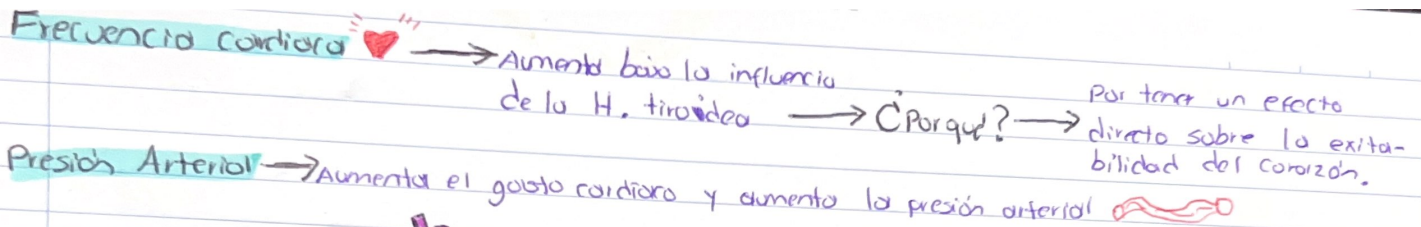 Frecuencia cardiaca → Aumenta bajo la influencia
de la H. tiroidea → ¿Porqué? → Por tener un efecto
directo sobre la exita-
bilidad del corazón.
Presión Arterial → Aumenta el gasto cardiaco y aumenta la presión arterial